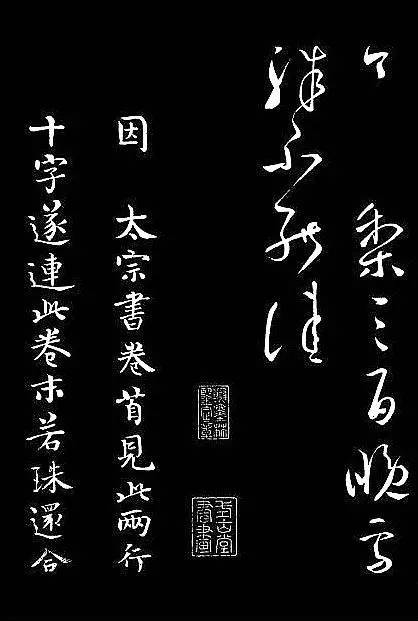 今梨三百晚雪
殊不能佳
因 太宗書卷首見此兩行
十字遂連此卷末若珠還合